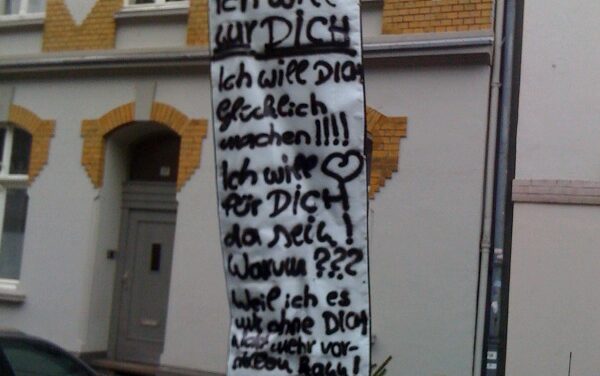 Ich will
nur DICH
Ich will DICH
Glücklich
machen!!!!
Ich will
für DICH
da sein!
Warum???
Weil ich es
ohne DICH
mehr vor-
kann!